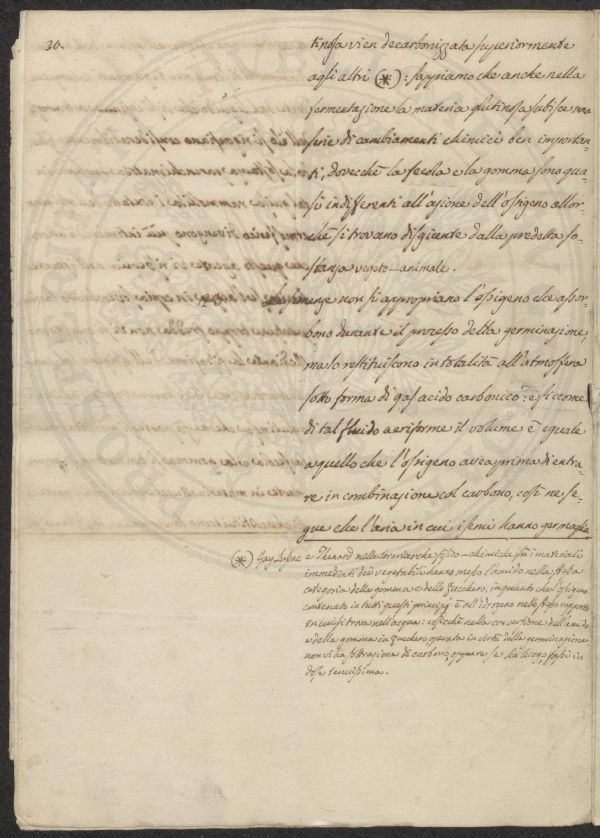 30.
tinosa vien decarbonizzata superiormente
agli altri (*): sappiamo che anche nella
fermentazione la materia glutinosa subisce una
serie di cambiamenti chimici ben importan-
ti, dovecchè la fecola e la gomma sono qua-
si indifferenti all'azione dell'ossigeno allor-
chè si trovano disgiunte dalla predetta so-
stanza vegeto-animale.
Le semenze non si appropriano l'ossigeno che assor-
bono durante il processo della germinazione,
ma lo restituiscono in totalità all'atmosfera
sotto forma di gas acido carbonico: e siccome
di tal fluido aeriforme il volume è eguale
a quello che l'ossigeno avea prima di entra-
re in combinazione col carbonio, così ne se-
gue che l'aria in cui i semi hanno germoglia
(*) Gay-Lussac e Thenard nelle loro ricerche fisico-chimiche su i materiali
immediati dei vegetabili hanno messo l'amido nella stessa
categoria della gomma e dello zucchero, inquantochè l'ossigeno
contenuto in tutti questi principj è all'idrogeno nello stesso rapporto
in cui si trova nell'acqua: cosicchè nella conversione dell'amido
e della gomma in zucchero operata in virtù della germinazione
non vi ha sottrazione di carbonio, oppure se ha luogo, fassi in
dose tenuissima.